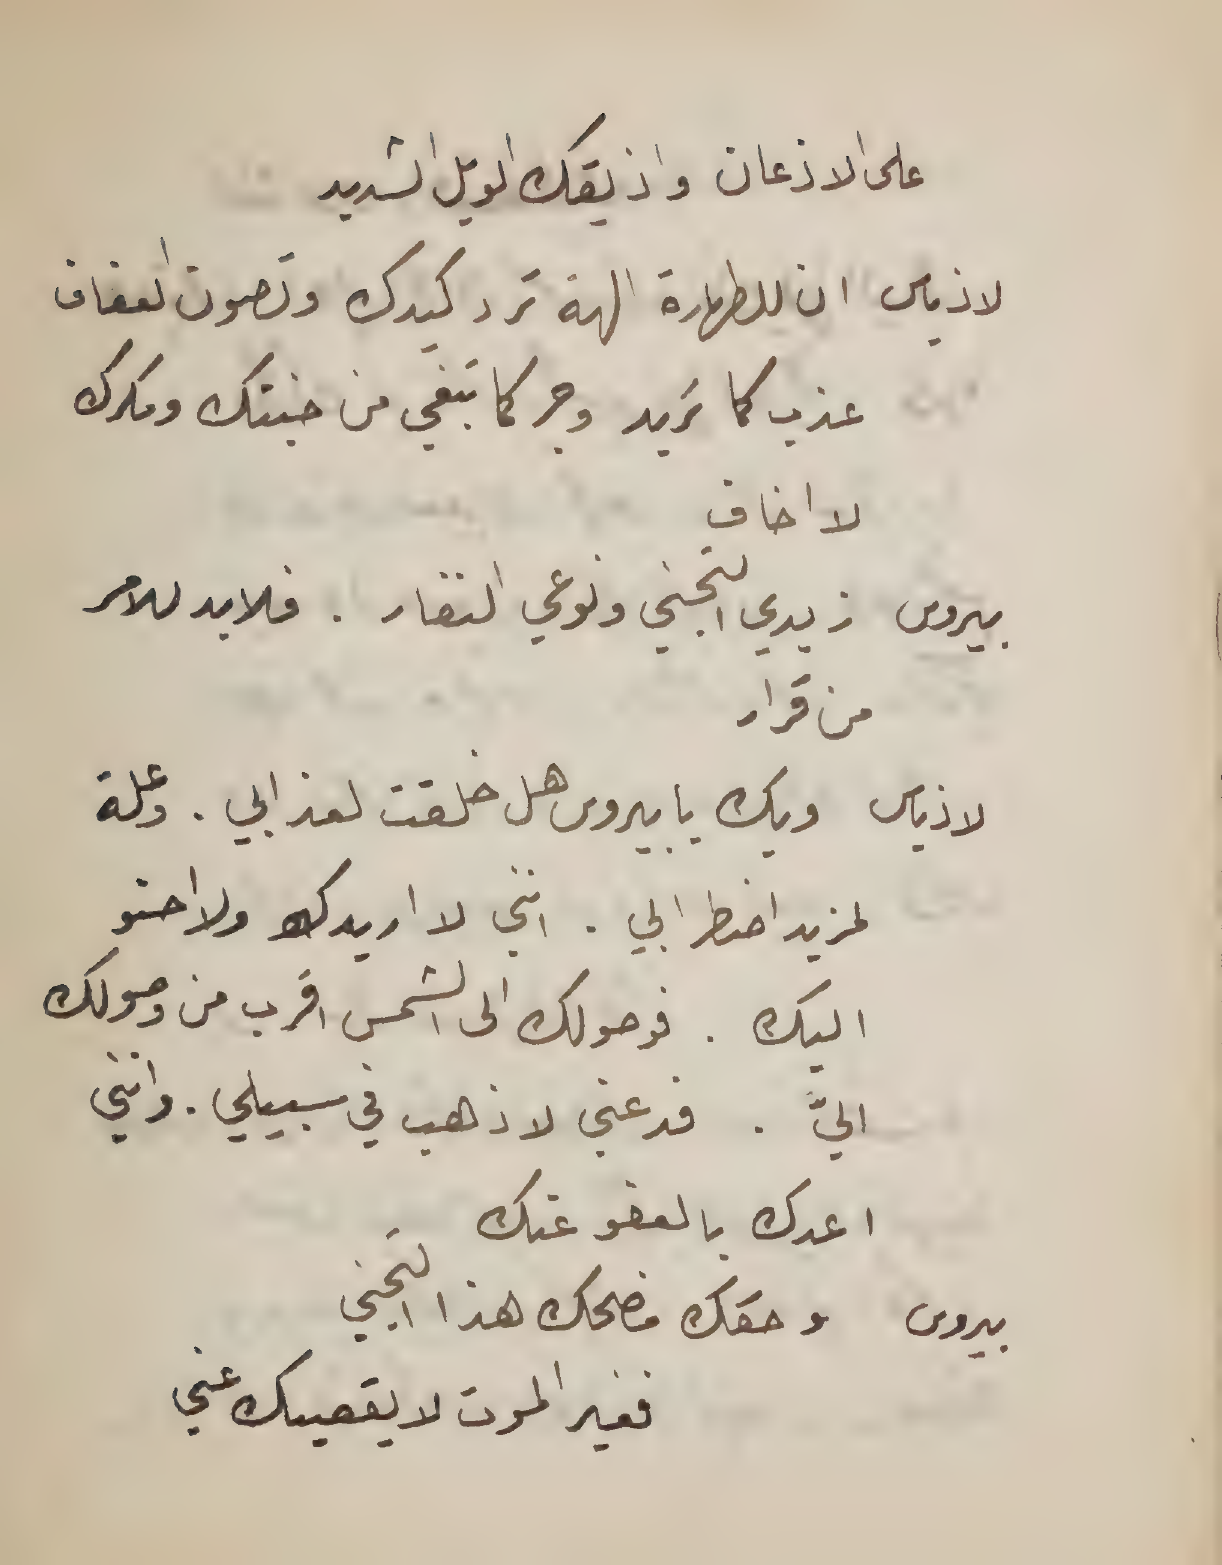 على الاذعان واذيقك الويل الشديد
لاذياس ان للطهارة الهة ترد كيدك وتصون العفاف
عذب كما تريد وجر كما تبغي من خبثك ومكرك
لا اخاف
بيروس زيدي التجني ونوعي النفار . فلا بد للامر
من قرار
لاذياس ويك يا بيروس هل خلقت لعذابي . وعلة
لمزيد اضطرابي . انني لا اريدك ولا احنو
اليك . فوصولك الى الشمس اقرب من وصولك
اليّ . فدعني لاذهب في سبيلي . وانني
اعدك بالعفو عنك
بيروس وحقك مضحك هذا التجني
فغير الموت لا يقصيك عني